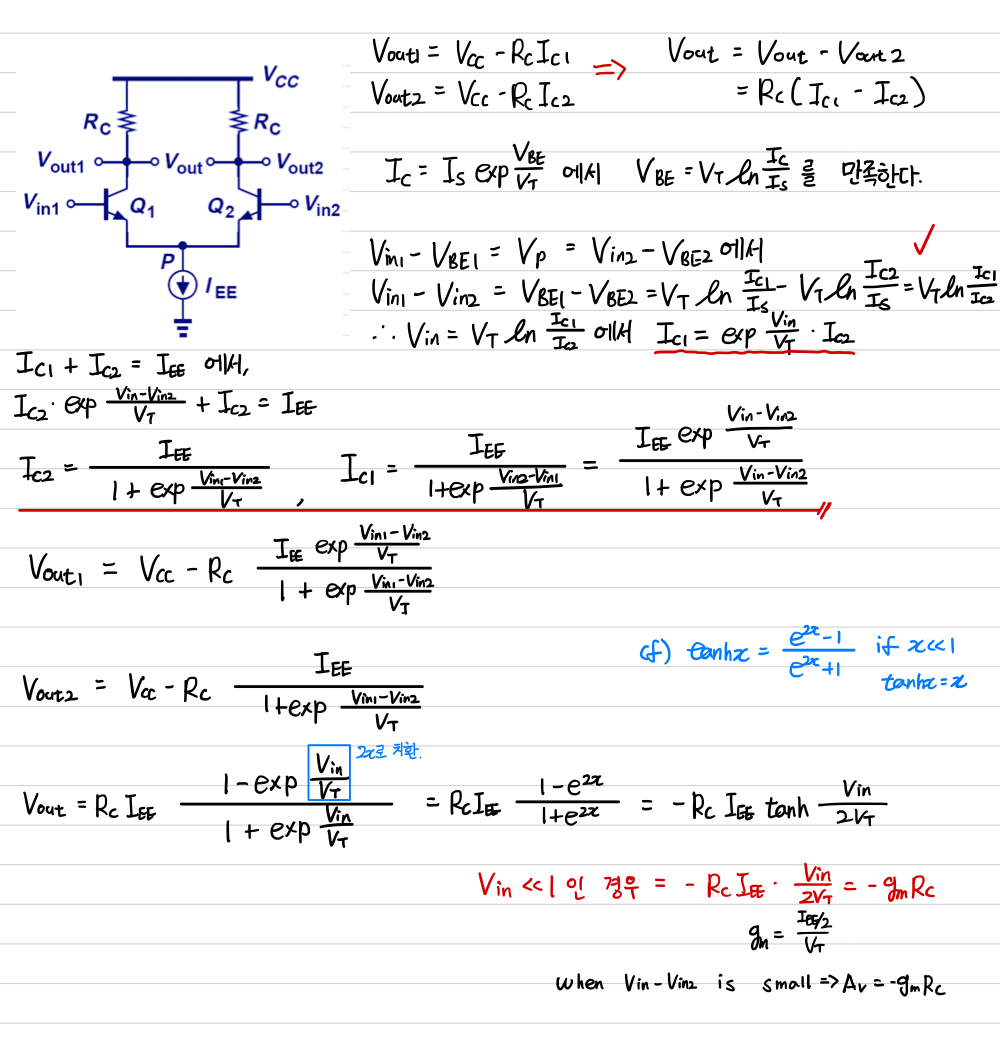 V_CC
R_C R_C
V_out1 V_out V_out2
V_in1 Q_1 Q_2 V_in2
P
I_EE
Vout1 = Vcc - Rc Ic1 ⇒ Vout = Vout - Vout2
Vout2 = Vcc - Rc Ic2 = Rc(Ic1 - Ic2)
Ic = Is exp V_BE/V_T 에서 V_BE = V_T ln Ic/Is 를 만족한다.
Vin1 - V_BE1 = Vp = Vin2 - V_BE2 에서 ✓
Vin1 - Vin2 = V_BE1 - V_BE2 = V_T ln Ic1/Is - V_T ln Ic2/Is = V_T ln Ic1/Ic2
∴ Vin = V_T ln Ic1/Ic2 에서 Ic1 = exp Vin/V_T · Ic2
Ic1 + Ic2 = I_EE 에서,
Ic2 · exp (Vin-Vin2)/V_T + Ic2 = I_EE
Ic2 = I_EE / (1 + exp (Vin1-Vin2)/V_T) , Ic1 = I_EE / (1+exp (Vin2-Vin1)/V_T) = I_EE exp (Vin-Vin2)/V_T / (1 + exp (Vin-Vin2)/V_T)
Vout1 = Vcc - Rc I_EE exp (Vin1-Vin2)/V_T / (1 + exp (Vin1-Vin2)/V_T)
cf) tanhx = (e^2x - 1)/(e^2x + 1) if x<<1
tanhx = x
Vout2 = Vcc - Rc I_EE / (1+exp (Vin1-Vin2)/V_T)
2x로 치환.
Vout = Rc I_EE (1 - exp Vin/V_T) / (1 + exp Vin/V_T) = Rc I_EE (1-e^2x)/(1+e^2x) = -Rc I_EE tanh Vin/2V_T
Vin << 1 인 경우 = -Rc I_EE · Vin/2V_T = -gmRc
gm = (I_EE/2)/V_T
when Vin-Vin2 is small => Av = -gmRc